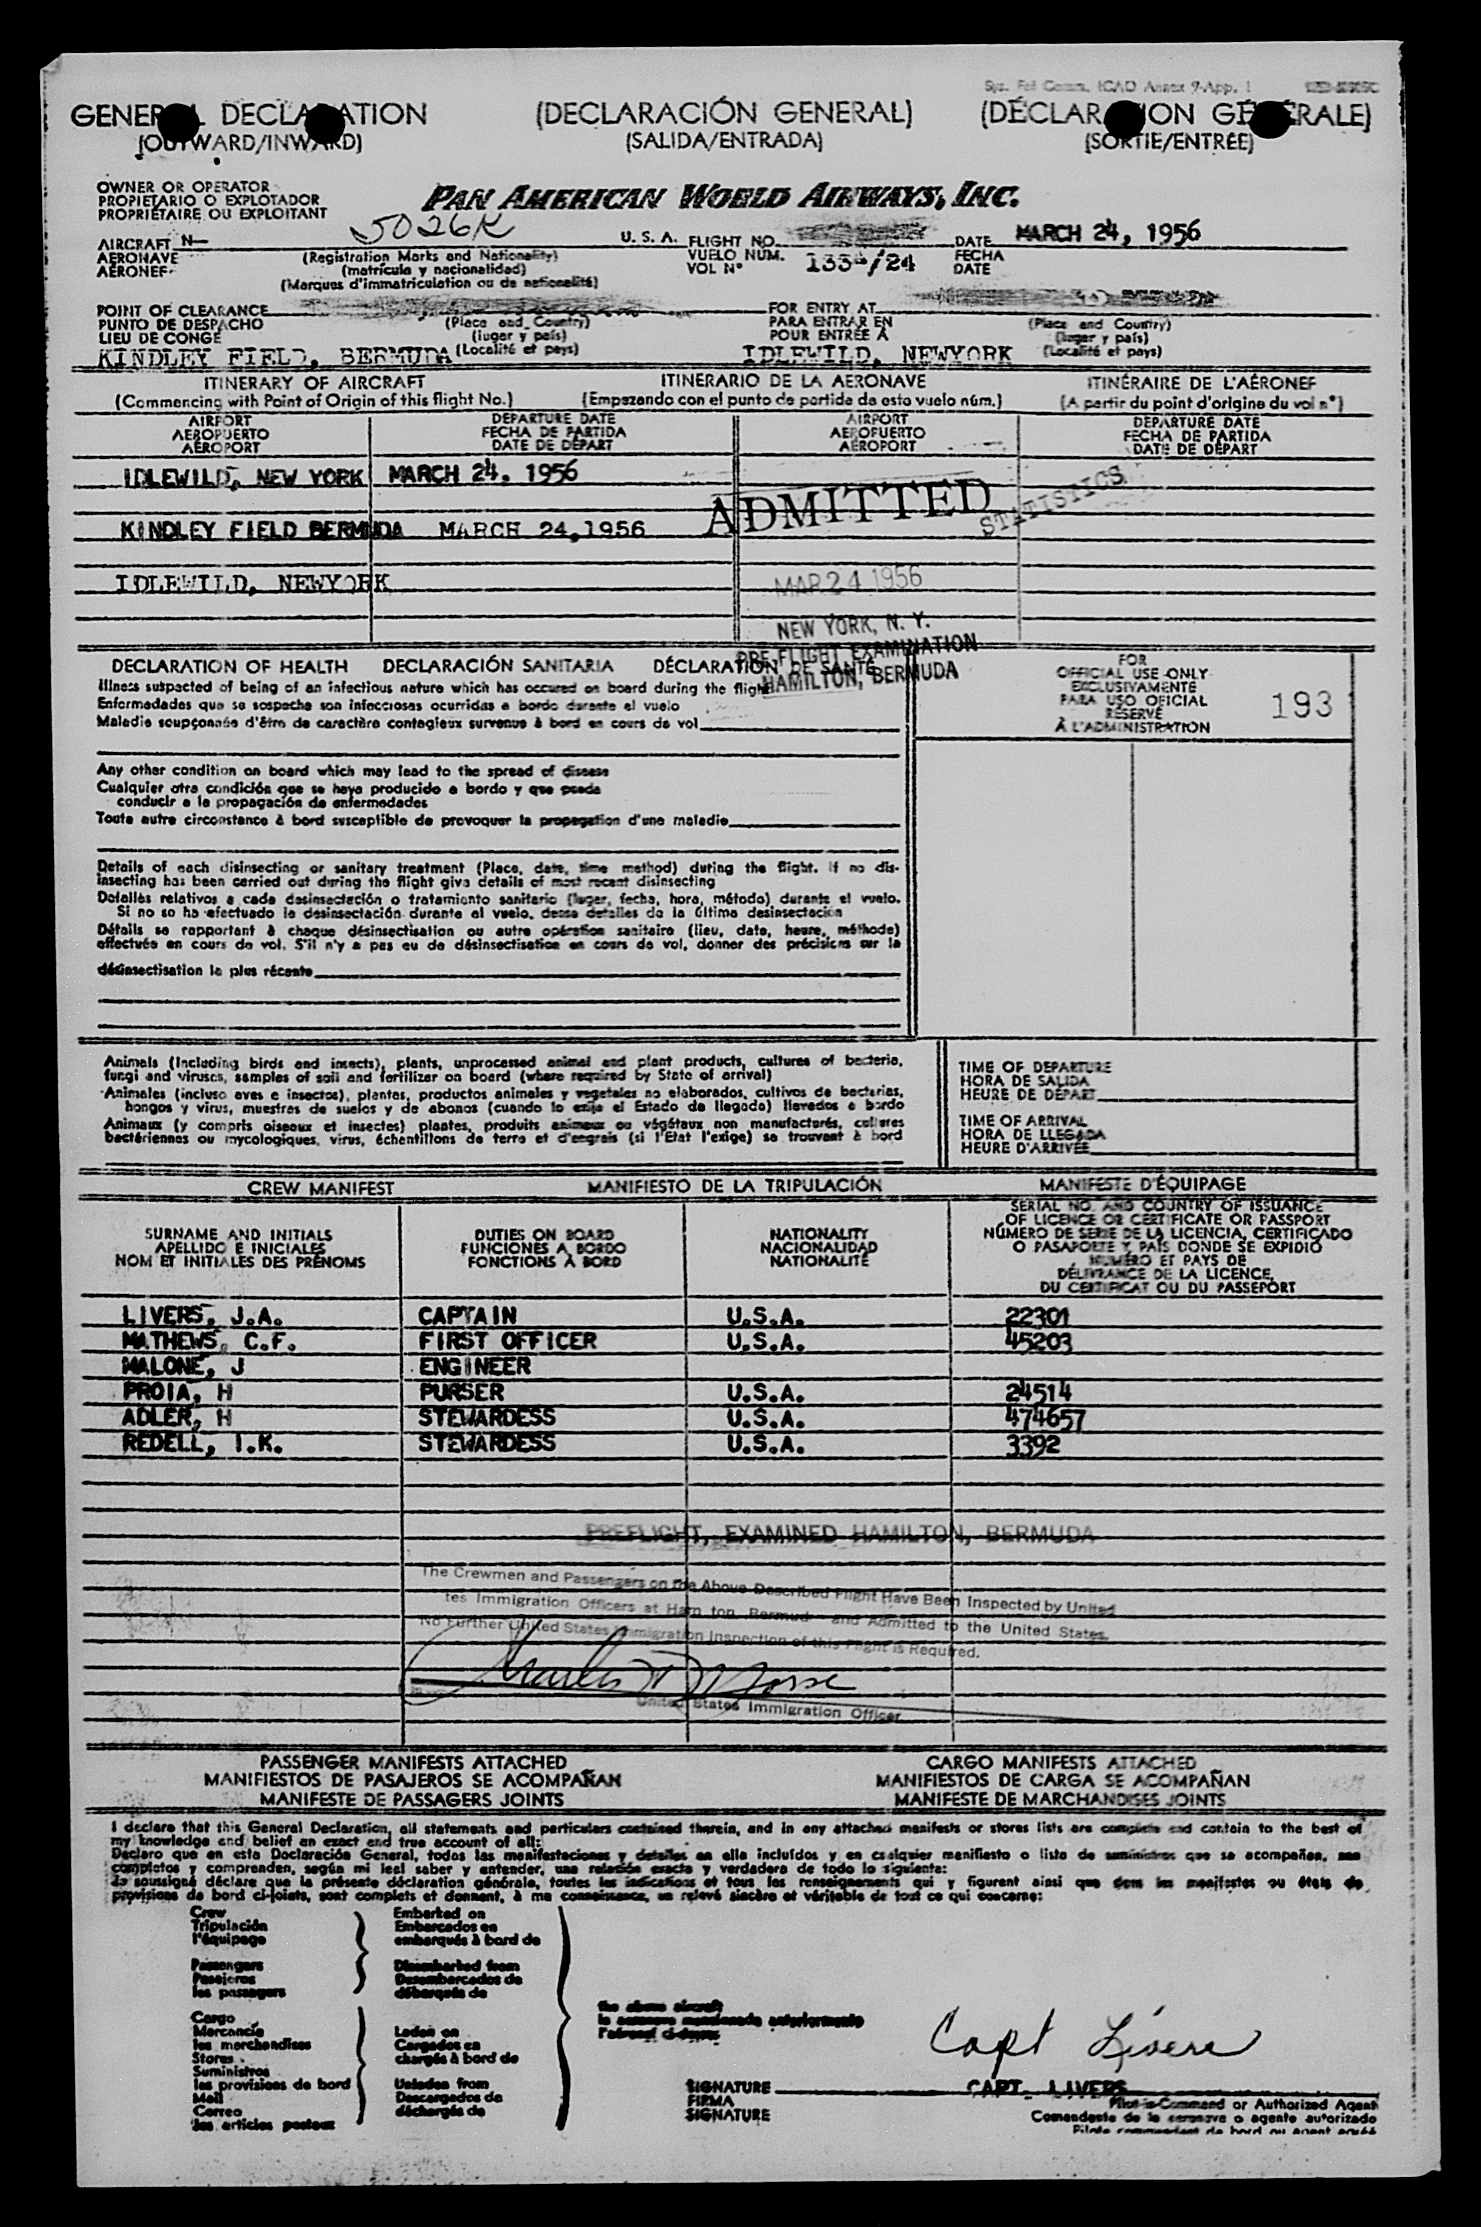 GENERAL DECLARATION (DECLARACIÓN GENERAL) (DÉCLARATION GÉNÉRALE)
(OUTWARD/INWARD) (SALIDA/ENTRADA) (SORTIE/ENTRÉE)
OWNER OR OPERATOR
PROPIETARIO O EXPLOTADOR
PROPRIÉTAIRE OU EXPLOITANT
PAN AMERICAN WORLD AIRWAYS, INC.
AIRCRAFT N- 5026K U. S. A. FLIGHT NO. DATE MARCH 24, 1956
AERONAVE (Registration Marks and Nationality) VUELO NÚM. FECHA
AÉRONEF (matrícula y nacionalidad) VOL N° /24 DATE
(Marques d'immatriculation ou de nationalité)
POINT OF CLEARANCE FOR ENTRY AT
PUNTO DE DESPACHO (Place and Country) PARA ENTRAR EN (Place and Country)
LIEU DE CONGÉ (lugar y país) POUR ENTRÉE À (lugar y país)
KINDLEY FIELD, BERMUDA (Localité et pays) IDLEWILD, NEWYORK (Localité et pays)
ITINERARY OF AIRCRAFT ITINERARIO DE LA AERONAVE ITINÉRAIRE DE L'AÉRONEF
(Commencing with Point of Origin of this flight No.) (Empezando con el punto de partida de esta vuelo núm.) (A partir du point d'origine du vol n°)
AIRPORT DEPARTURE DATE AIRPORT DEPARTURE DATE
AEROPUERTO FECHA DE PARTIDA AEROPUERTO FECHA DE PARTIDA
AÉROPORT DATE DE DÉPART AÉROPORT DATE DE DÉPART
IDLEWILD, NEW YORK MARCH 24. 1956
ADMITTED STATISTICS
KINDLEY FIELD BERMUDA MARCH 24,1956
IDLEWILD, NEWYORK MAR 24 1956
NEW YORK, N. Y.
PRE-FLIGHT EXAMINATION
HAMILTON, BERMUDA
DECLARATION OF HEALTH DECLARACIÓN SANITARIA DÉCLARATION DE SANTÉ
Illness suspected of being of an infectious nature which has occured on board during the flight
Enfermedades que se sospecha son infecciosas ocurridas a bordo durante el vuelo
Maladie soupçonnée d'être de caractère contagieux survenue à bord en cours de vol
FOR
OFFICIAL USE ONLY
EXCLUSIVAMENTE
PARA USO OFICIAL
RÉSERVÉ
À L'ADMINISTRATION
193
Any other condition on board which may lead to the spread of disease
Cualquier otra condición que se haya producido a bordo y que pueda
conducir a la propagación de enfermedades
Toute autre circonstance à bord susceptible de provoquer la propagation d'une maladie
Details of each disinsecting or sanitary treatment (Place, date, time method) during the flight. If no dis-
insecting has been carried out during the flight give details of most recent disinsecting
Detalles relativos a cada desinsectación o tratamiento sanitario (lugar, fecha, hora, método) durante el vuelo.
Si no se ha efectuado la desinsectación durante el vuelo, dense detalles de la última desinsectación
Détails se rapportant à chaque désinsectisation ou autre opération sanitaire (lieu, date, heure, méthode)
effectuée en cours de vol. S'il n'y a pas eu de désinsectisation en cours de vol, donner des précisions sur la
désinsectisation la plus récente
Animals (Including birds and insects), plants, unprocessed animal and plant products, cultures of bacteria,
fungi and viruses, samples of soil and fertilizer on board (where required by State of arrival)
Animales (incluso aves e insectos), plantas, productos animales y vegetales no elaborados, cultivos de bacterias,
hongos y virus, muestras de suelos y de abonos (cuando lo exija el Estado de llegada) llevados a bordo
Animaux (y compris oiseaux et insectes) plantes, produits animaux ou végétaux non manufacturés, cultures
bactériennes ou mycologiques, virus, échantillons de terre et d'engrais (si l'Etat l'exige) se trouvant à bord
TIME OF DEPARTURE
HORA DE SALIDA
HEURE DE DÉPART
TIME OF ARRIVAL
HORA DE LLEGADA
HEURE D'ARRIVÉE
CREW MANIFEST MANIFIESTO DE LA TRIPULACIÓN MANIFESTE D'ÉQUIPAGE
SURNAME AND INITIALS
APELLIDO E INICIALES
NOM ET INITIALES DES PRÉNOMS
DUTIES ON BOARD
FUNCIONES A BORDO
FONCTIONS À BORD
NATIONALITY
NACIONALIDAD
NATIONALITÉ
SERIAL NO. AND COUNTRY OF ISSUANCE
OF LICENCE OR CERTIFICATE OR PASSPORT
NÚMERO DE SERIE DE LA LICENCIA, CERTIFICADO
O PASAPORTE Y PAÍS DONDE SE EXPIDIÓ
NUMÉRO ET PAYS DE
DÉLIVRANCE DE LA LICENCE,
DU CERTIFICAT OU DU PASSEPORT
LIVERS, J.A. CAPTAIN U.S.A. 22301
MATHEWS, C.F. FIRST OFFICER U.S.A. 45203
MALONE, J ENGINEER
PROIA, H PURSER U.S.A. 24514
ADLER, H STEWARDESS U.S.A. 474657
REDELL, I.K. STEWARDESS U.S.A. 3392
PREFLIGHT, EXAMINED HAMILTON, BERMUDA
The Crewmen and Passengers on the Above Described Flight Have Been Inspected by United
tes Immigration Officers at Ham ton Bermud and Admitted to the United States.
No Further United States Immigration Inspection of this Flight is Required.
United States Immigration Officer
PASSENGER MANIFESTS ATTACHED CARGO MANIFESTS ATTACHED
MANIFIESTOS DE PASAJEROS SE ACOMPAÑAN MANIFIESTOS DE CARGA SE ACOMPAÑAN
MANIFESTE DE PASSAGERS JOINTS MANIFESTE DE MARCHANDISES JOINTS
I declare that this General Declaration, all statements and particulars contained therein, and in any attached manifests or stores lists are complete and contain to the best of
my knowledge and belief an exact and true account of all:
Declaro que en esta Declaración General, todas las manifestaciones y detalles en ella incluídos y en cualquier manifiesto o lista de suministros que se acompañen, son
completos y comprenden, según mi leal saber y entender, una relación exacta y verdadera de todo lo siguiente:
Je soussigné déclare que la présente déclaration générale, toutes les indications et tous les renseignements qui y figurent ainsi que dans les manifestes ou états de
provisions de bord ci-joints, sont complets et donnent, à ma connaissance, un relevé sincère et véritable de tout ce qui concerne:
Crew Embarked on
Tripulación Embarcados en
l'équipage embarqués à bord de
Passengers Disembarked from
Pasajeros Desembarcados de
les passagers débarqués de
the above aircraft
la aeronave mencionada anteriormente
l'aéronef ci-dessus
Cargo
Mercancía Laden on
les marchandises Cargados en
Stores chargés à bord de
Suministros
les provisions de bord Unladen from
Mail Descargados de
Correo déchargés de
les articles postaux
Capt Livers
SIGNATURE CAPT. LIVERS
FIRMA Pilot-in-Command or Authorized Agent
SIGNATURE Comandante de la aeronave o agente autorizado
Pilote commandant de bord ou agent agréé